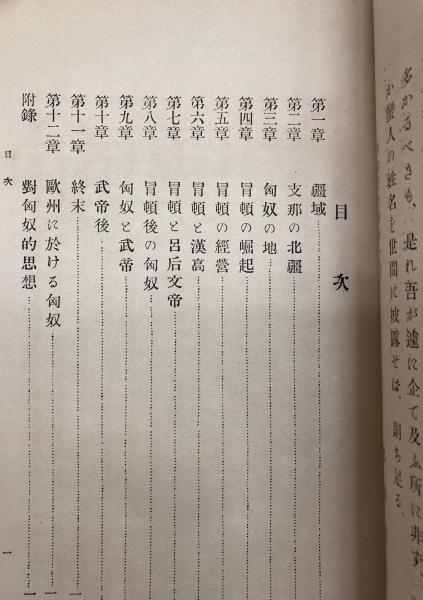 多かるべきも、是れ吾が遽に企て及ぶ所に非ず
か儕人の姓名を世間に披露せば、則ち足る、
目次
第一章 疆域
第二章 支那の北疆
第三章 匈奴の地
第四章 冒頓の崛起
第五章 冒頓の經營
第六章 冒頓と漢高
第七章 冒頓と呂后文帝
第八章 冒頓後の匈奴
第九章 匈奴と武帝
第十章 武帝後
第十一章 終末 一
第十二章 歐州に於ける匈奴 一
附錄 對匈奴的思想 一
目次 一